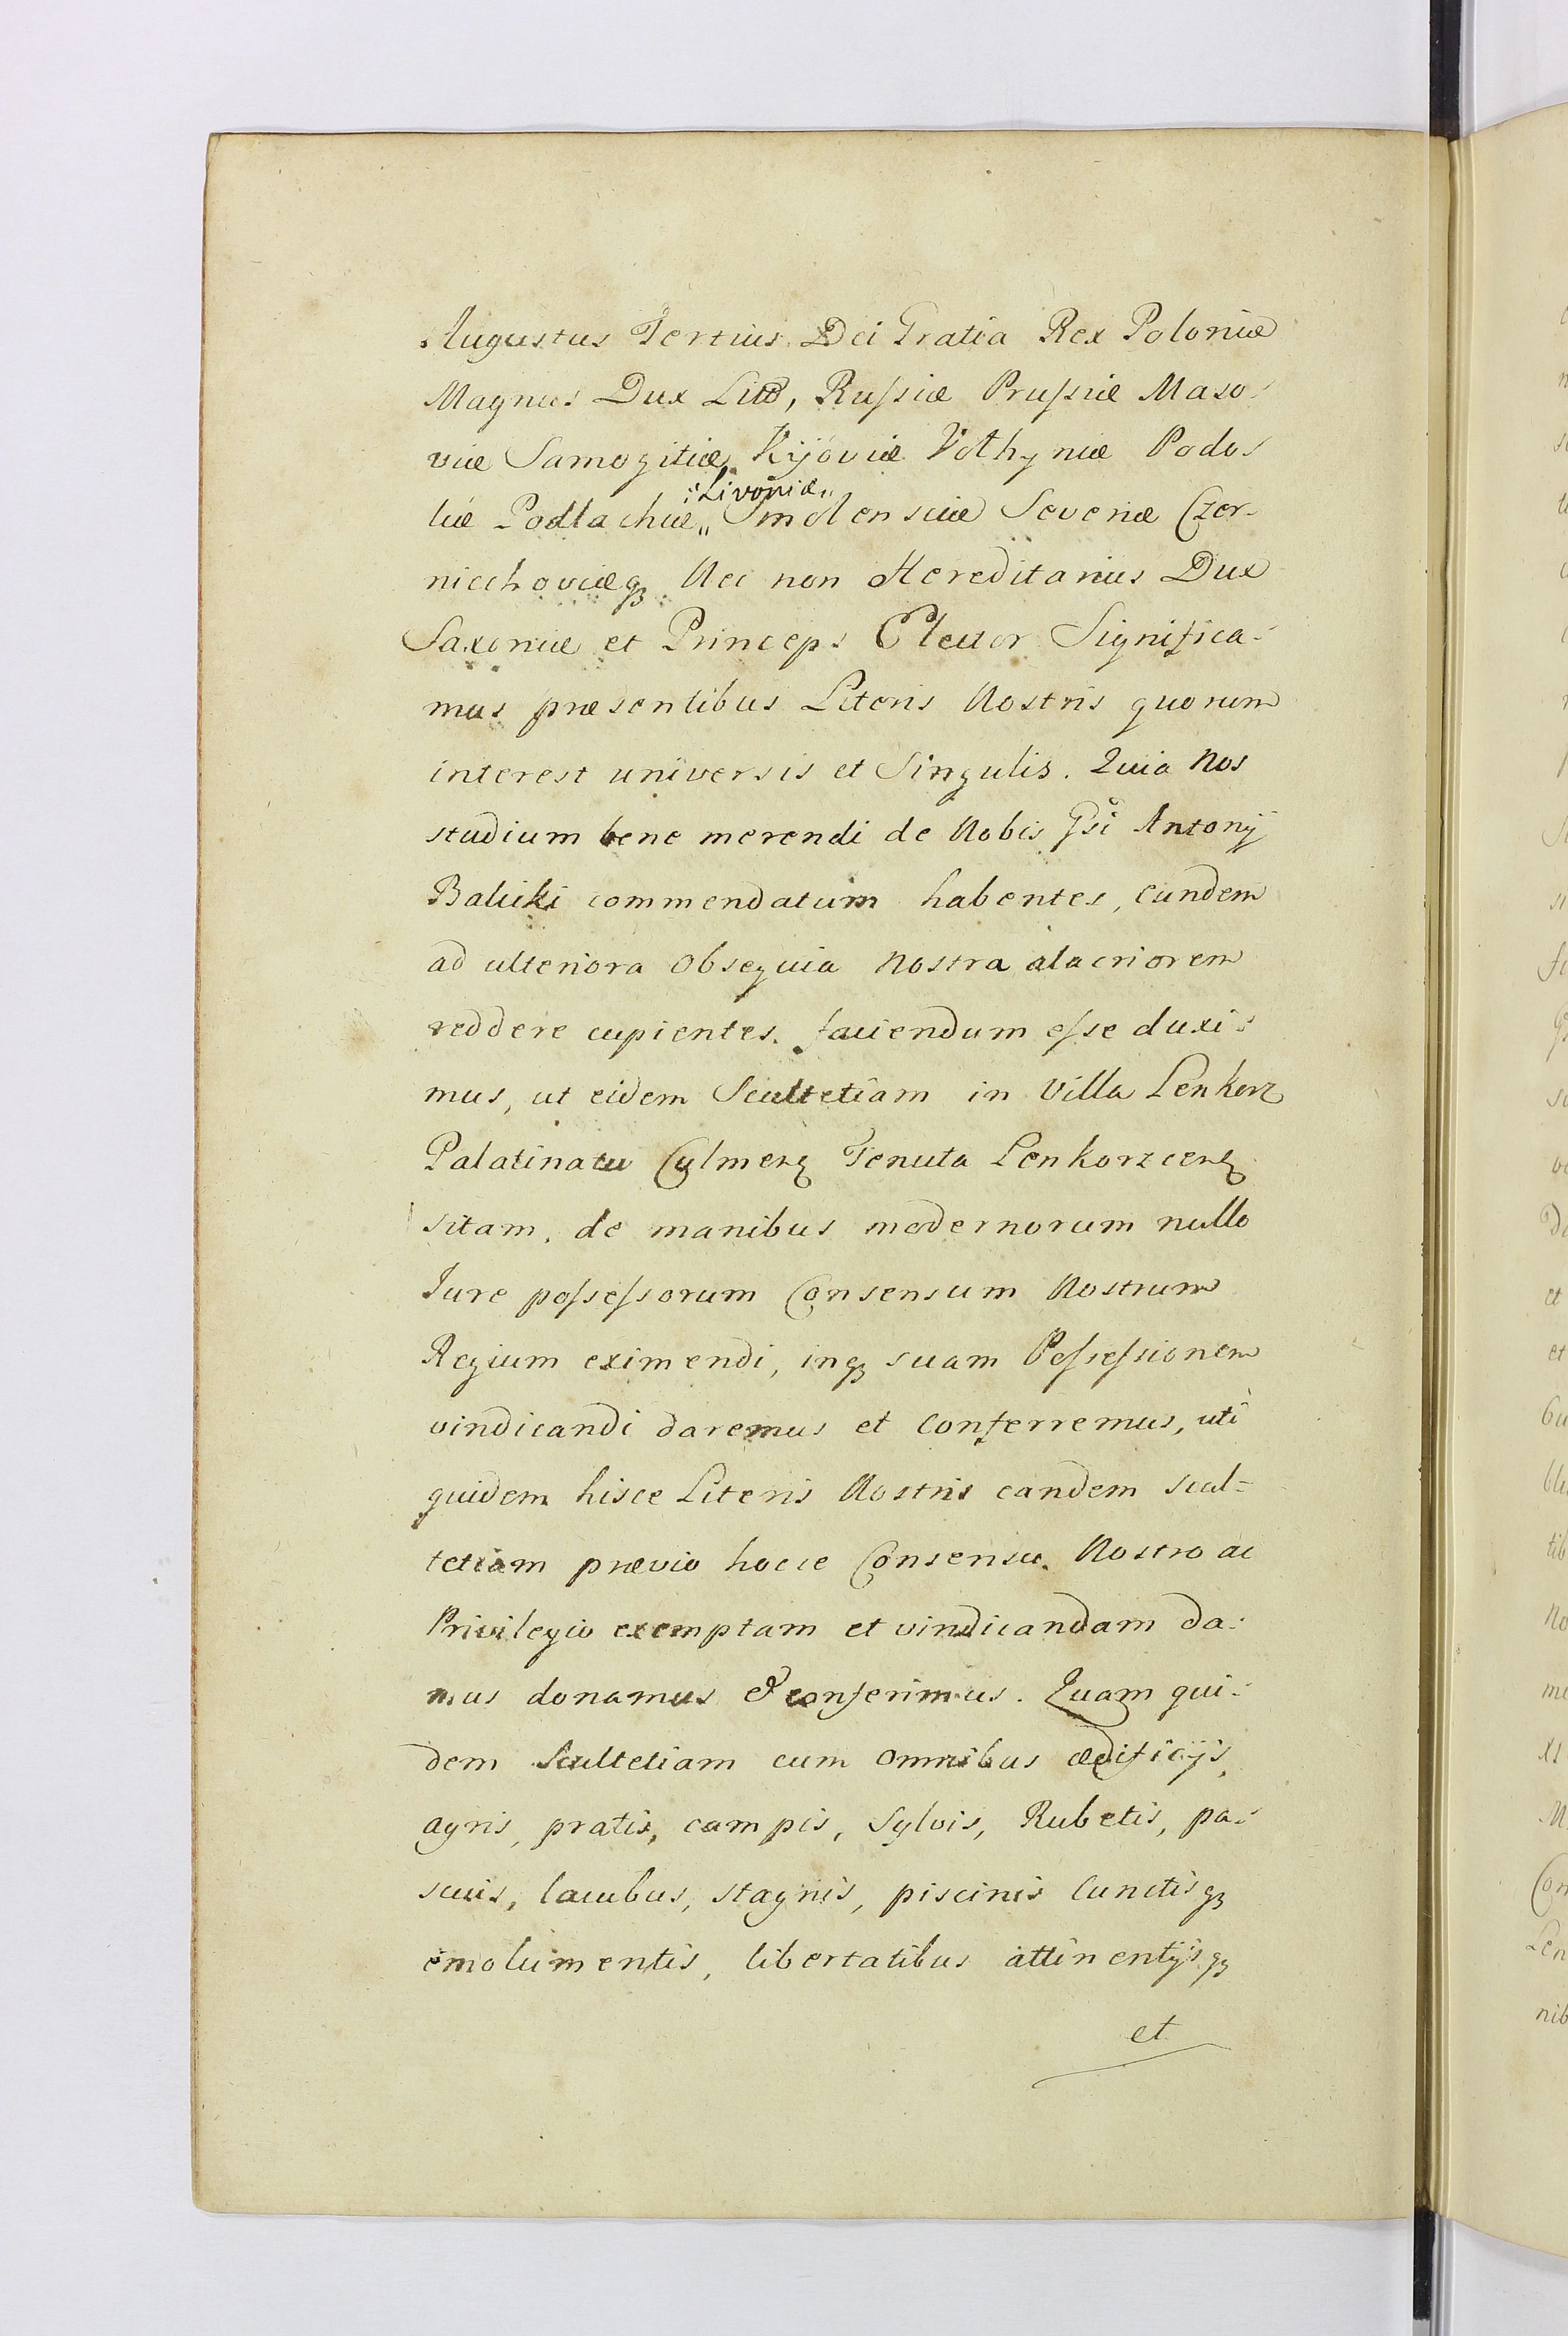 Augustus Tertius Dei Gratia Rex Poloniæ
Magnus Dux Litt, Rusſiæ Pruſsiæ Maso-
viæ Samogitiæ Kijoviæ Volhyniæ Podo-
liæ Podlachiæ „Livoniæ„ Smolensciæ Severiæ Czer-
niechoviæq; Nec non Hereditarius Dux
Saxoniæ et Princeps Elector Significa-
mus præsentibus Literis Nostris quorum
interest universis et Singulis. Quia Nos
studium bene merendi de Nobis Gsi Antonij
Balicki commendatum habentes, eundem
ad ulteriora obsequia nostra alacriorem
reddere cupientes. faciendum eſse duxi-
mus, ut eidem Scultetiam in Villa Lenkorz
Palatinatu Culmen; Tenuta Lenkorzcen;
sitam, de manibus modernorum nullo
Jure poſseſsorum Consensum Nostrum
Regium eximendi, inq; suam Poſseſsionem
vindicandi daremus et conferremus, uti
quidem hisce Literis Nostris eandem scul=
tetiam prævio hocce Consensu Nostro ac
Privilegio exemptam et vindicandam da-
mus donamus & conferimus. Quam qui-
dem Scultetiam cum omnibus ædificijs,
agris, pratis, campis, Sylvis, Rubetis, pa-
scuis, lacubus, stagnis, piscinis cunctisq;
emolumentis, libertatibus attinentijsq;
et